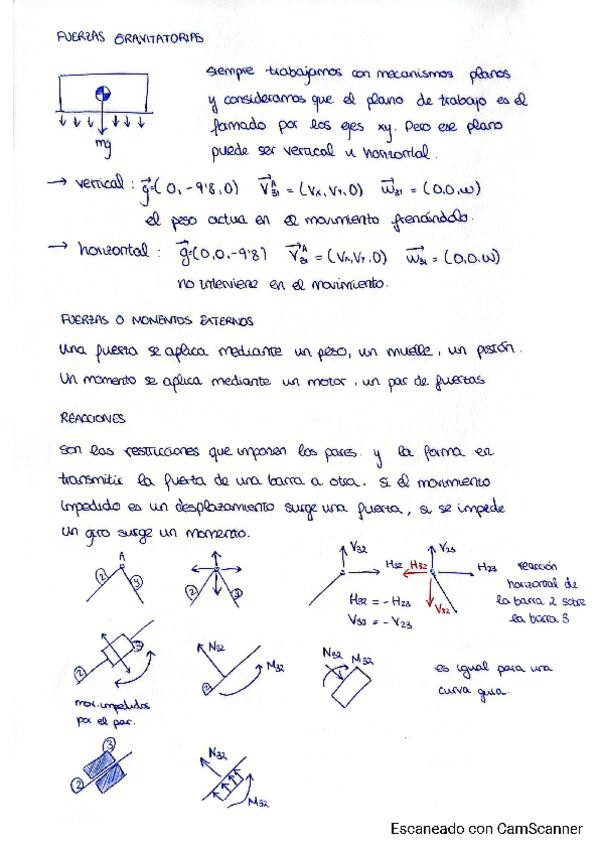 FUERZAS GRAVITATORIAS
siempre trabajamos con mecanismos planos
y consideramos que el plano de trabajo es el
formado por los ejes xy. Pero ese plano
puede ser vertical u horizontal.
mg
→ vertical : g=(0, -9'8, 0) V₃₁ᴬ = (Vx, Vy, 0) ω₃₁ = (0,0,ω)
el peso actua en el movimiento frenándolo.
→ horizontal : g=(0,0,-9'8) V₃₁ᴬ = (Vx, Vy, 0) ω₃₁ = (0,0,ω)
no interviene en el movimiento.
FUERZAS O MOMENTOS EXTERNOS
una fuerza se aplica mediante un peso, un muelle, un pistón.
Un momento se aplica mediante un motor, un par de fuerzas
REACCIONES
son las restricciones que imponen los pares y la forma en
transmitir la fuerza de una barra a otra. si el movimiento
impedido es un desplazamiento surge una fuerza, si se impide
un giro surge un momento.
A
2 3
2 3
V32
H32
H32 = -H23
V32 = -V23
H32 V23 H23
V32
reacción
horizontal de
la barra 2 sobre
la barra 3
3
2
mov. impedidos
por el par.
N32
M32
2
N32 M32
es igual para una
curva guia.
3
2
N32
M32
Escaneado con CamScanner